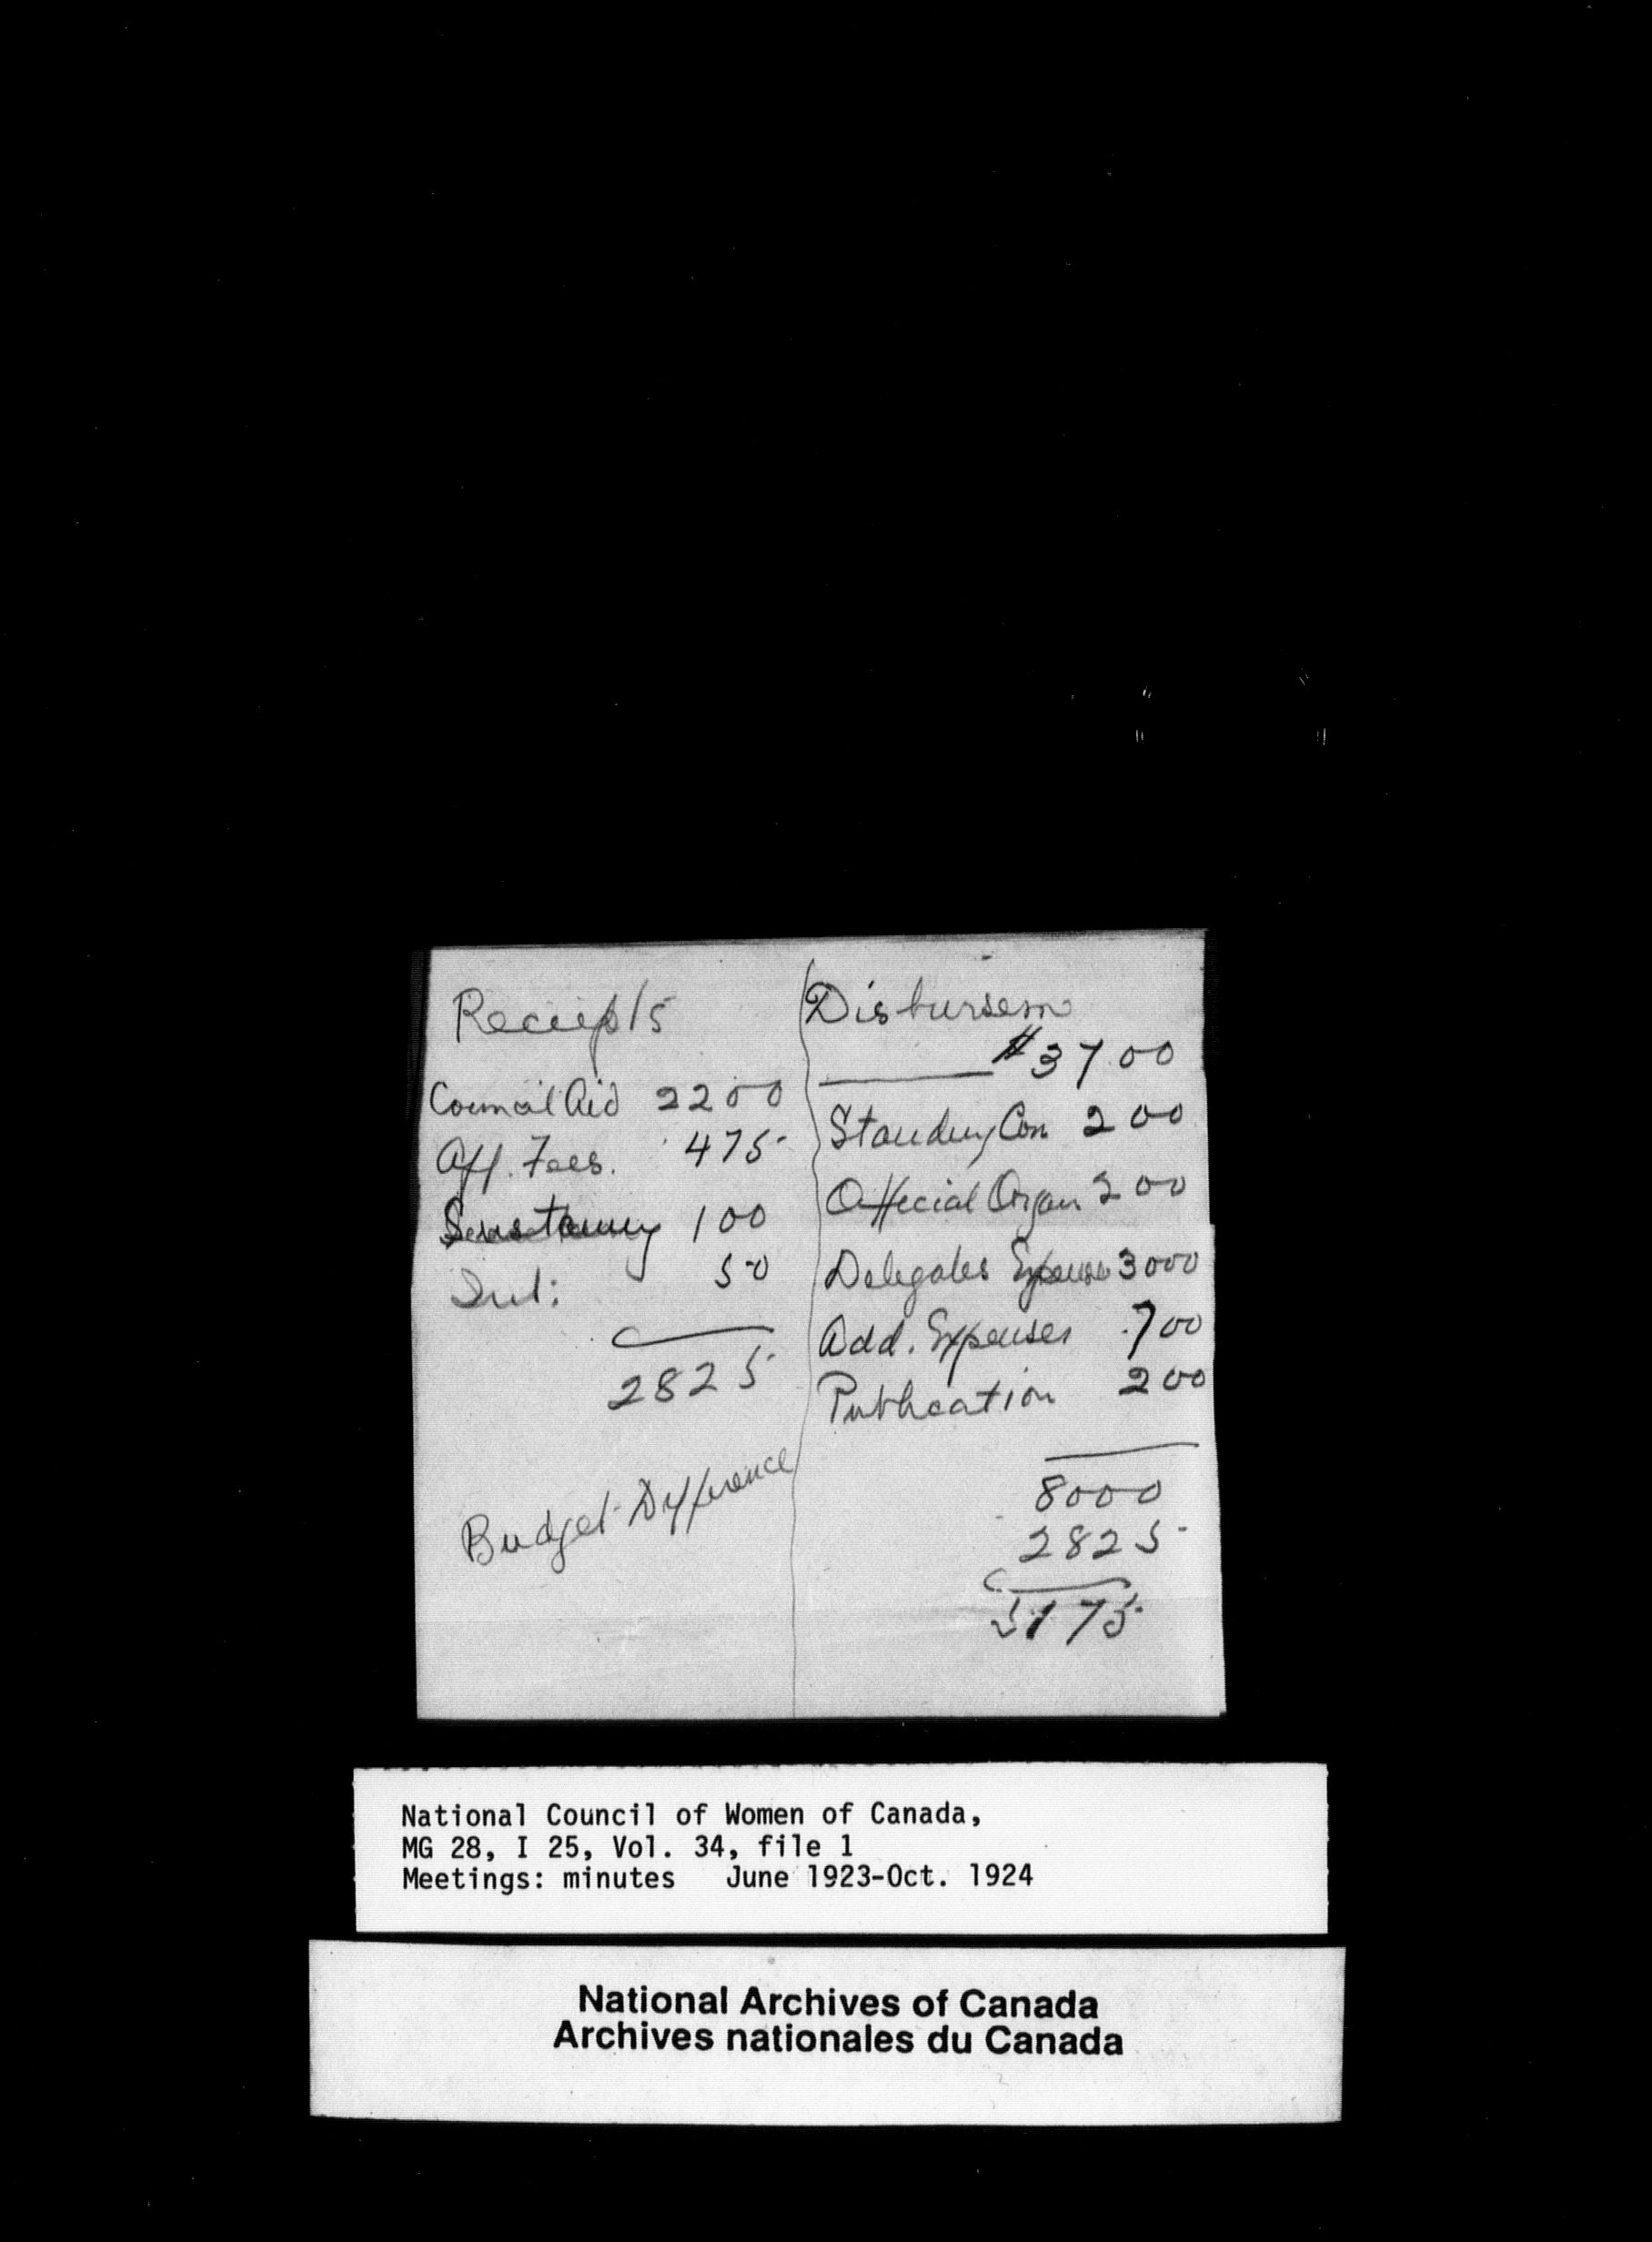 Receipts
Council Aid 2200
Aff. Fees. 475
100
Int: 50
2825
Budget Difference
Disbursem
$3700
Standing Com 200
Official Organ 200
Delegates Expenses 3000
Add. Expenses 700
Publication 200
8000
2825
5175
National Council of Women of Canada,
MG 28, I 25, Vol. 34, file 1
Meetings: minutes June 1923-Oct. 1924
National Archives of Canada
Archives nationales du Canada